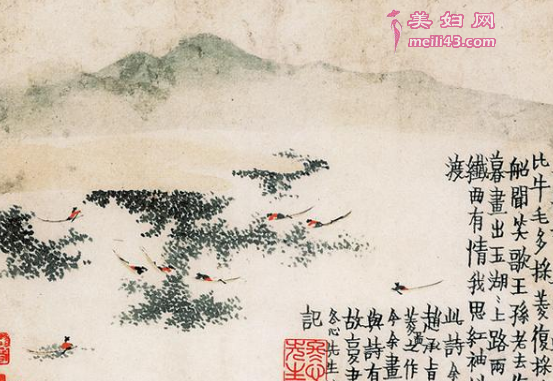 美妇网
meili43.com
比牛毛多採菱復採
船聞笑歌王孫老去
暮畫出玉湖〻上路兩
纖曲有情我思紅袖
渡
此詩余
趙承旨
菱圖之作
今余畫
與詩有
故
冬心先生
記
冬心先生